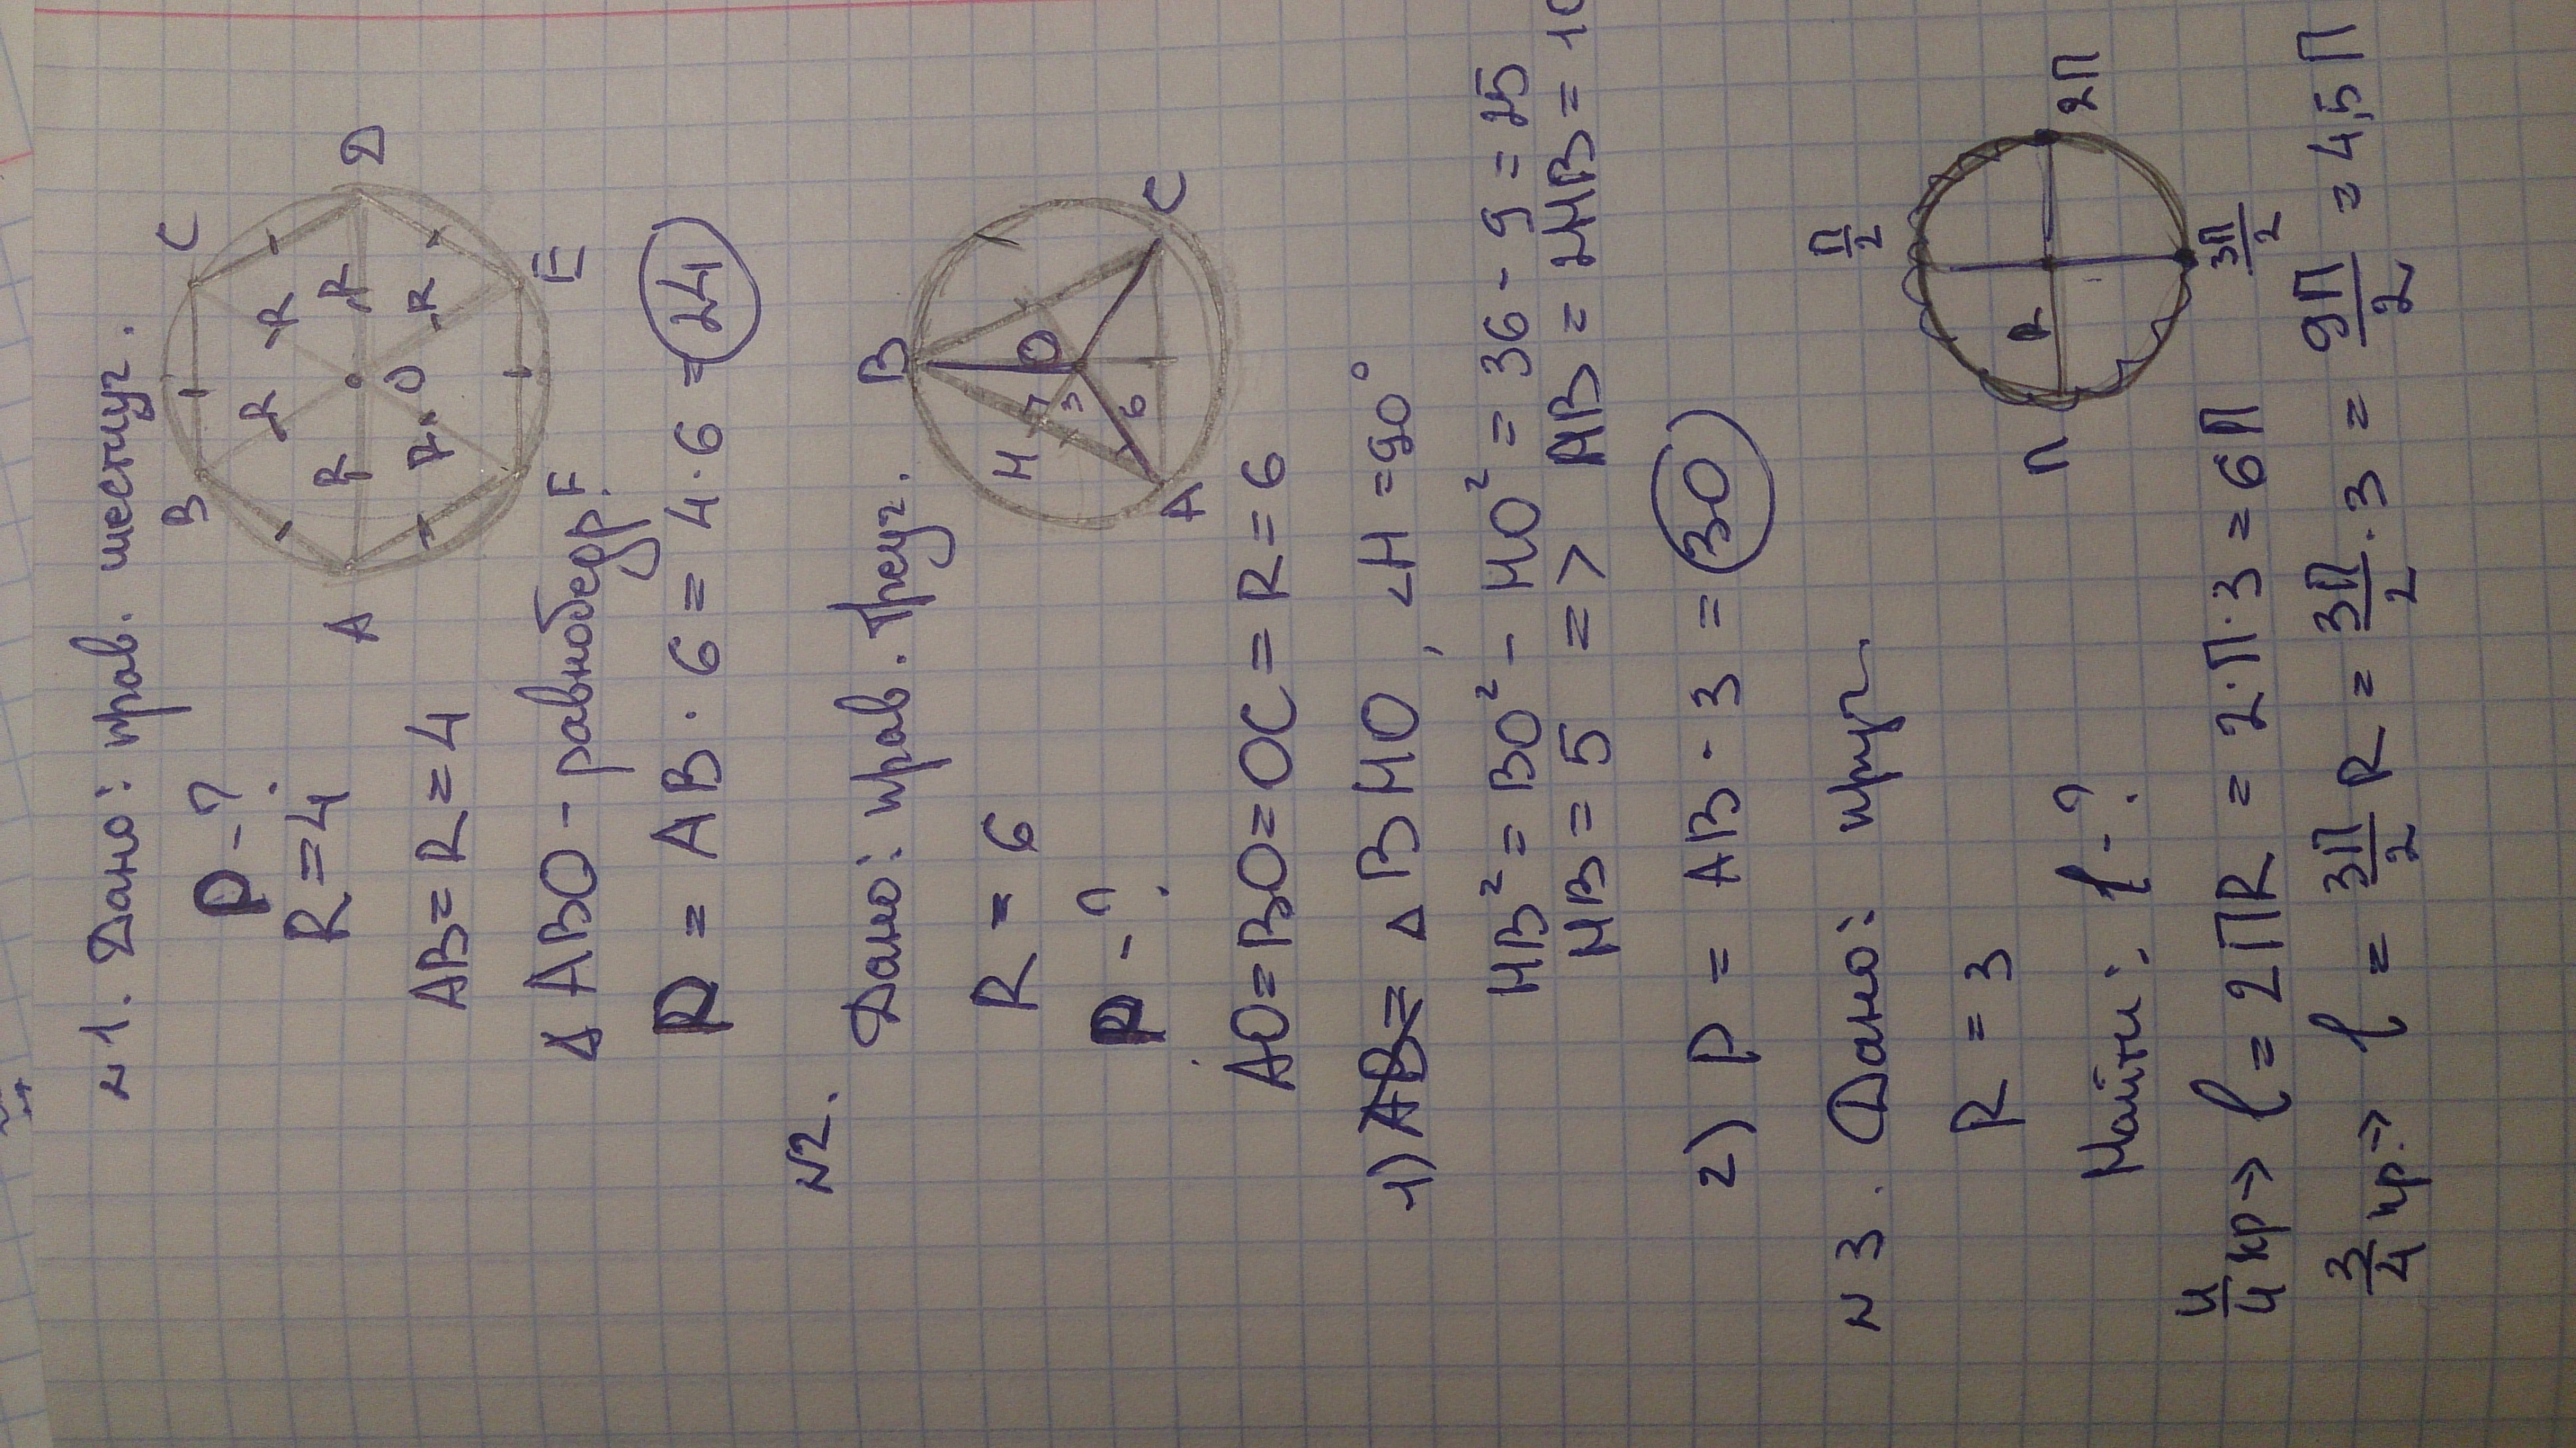 N 1. Дано: прав. шестиуг.
P - ?
R = 4
AB = R = 4
Δ ABO - равнобедр.
P = AB · 6 = 4 · 6 = 24
A B C D E F O
R R R R R R
N2.
Дано: прав. треуг.
R = 6
P - ?
A B C H O 3 6
AO = BO = OC = R = 6
1) AB = Δ BHO, ∠H = 90°
HB² = BO² - HO² = 36 - 9 = 25
HB = 5 => AB = 2HB = 10
2) P = AB · 3 = 30
N 3. Дано: круг
R = 3
Найти: l - ?
π/2 π 2π 3π/2 R
4/4 кр => l = 2ПR = 2·П·3 = 6П
3/4 кр. => l = 3П/2 R = 3П/2 · 3 = 9П/2 = 4,5 П